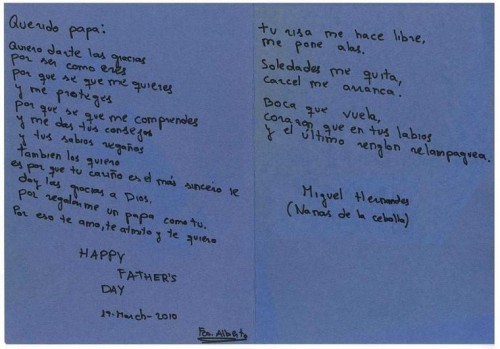 Querido papa:
Quiero darte las gracias
por ser como eres
por que se que me quieres
y me proteges
por que se que me comprendes
y me das tus consejos
y tus sabios regaños
tambien los quiero
es por que tu cariño es el más sincero le
doy las gracias a Dios.
por regalarme un papa como tu.
Por eso te amo, te admiro y te quiero
HAPPY
FATHER'S
DAY
19-March-2010
Fdo. Alberto
tu risa me hace libre,
me pone alas.
Soledades me quita,
carcel me arranca.
Boca que vuela,
corazón que en tus labios
y el último renglon relampaguea.
Miguel Hernandes
(Nanas de la cebolla)